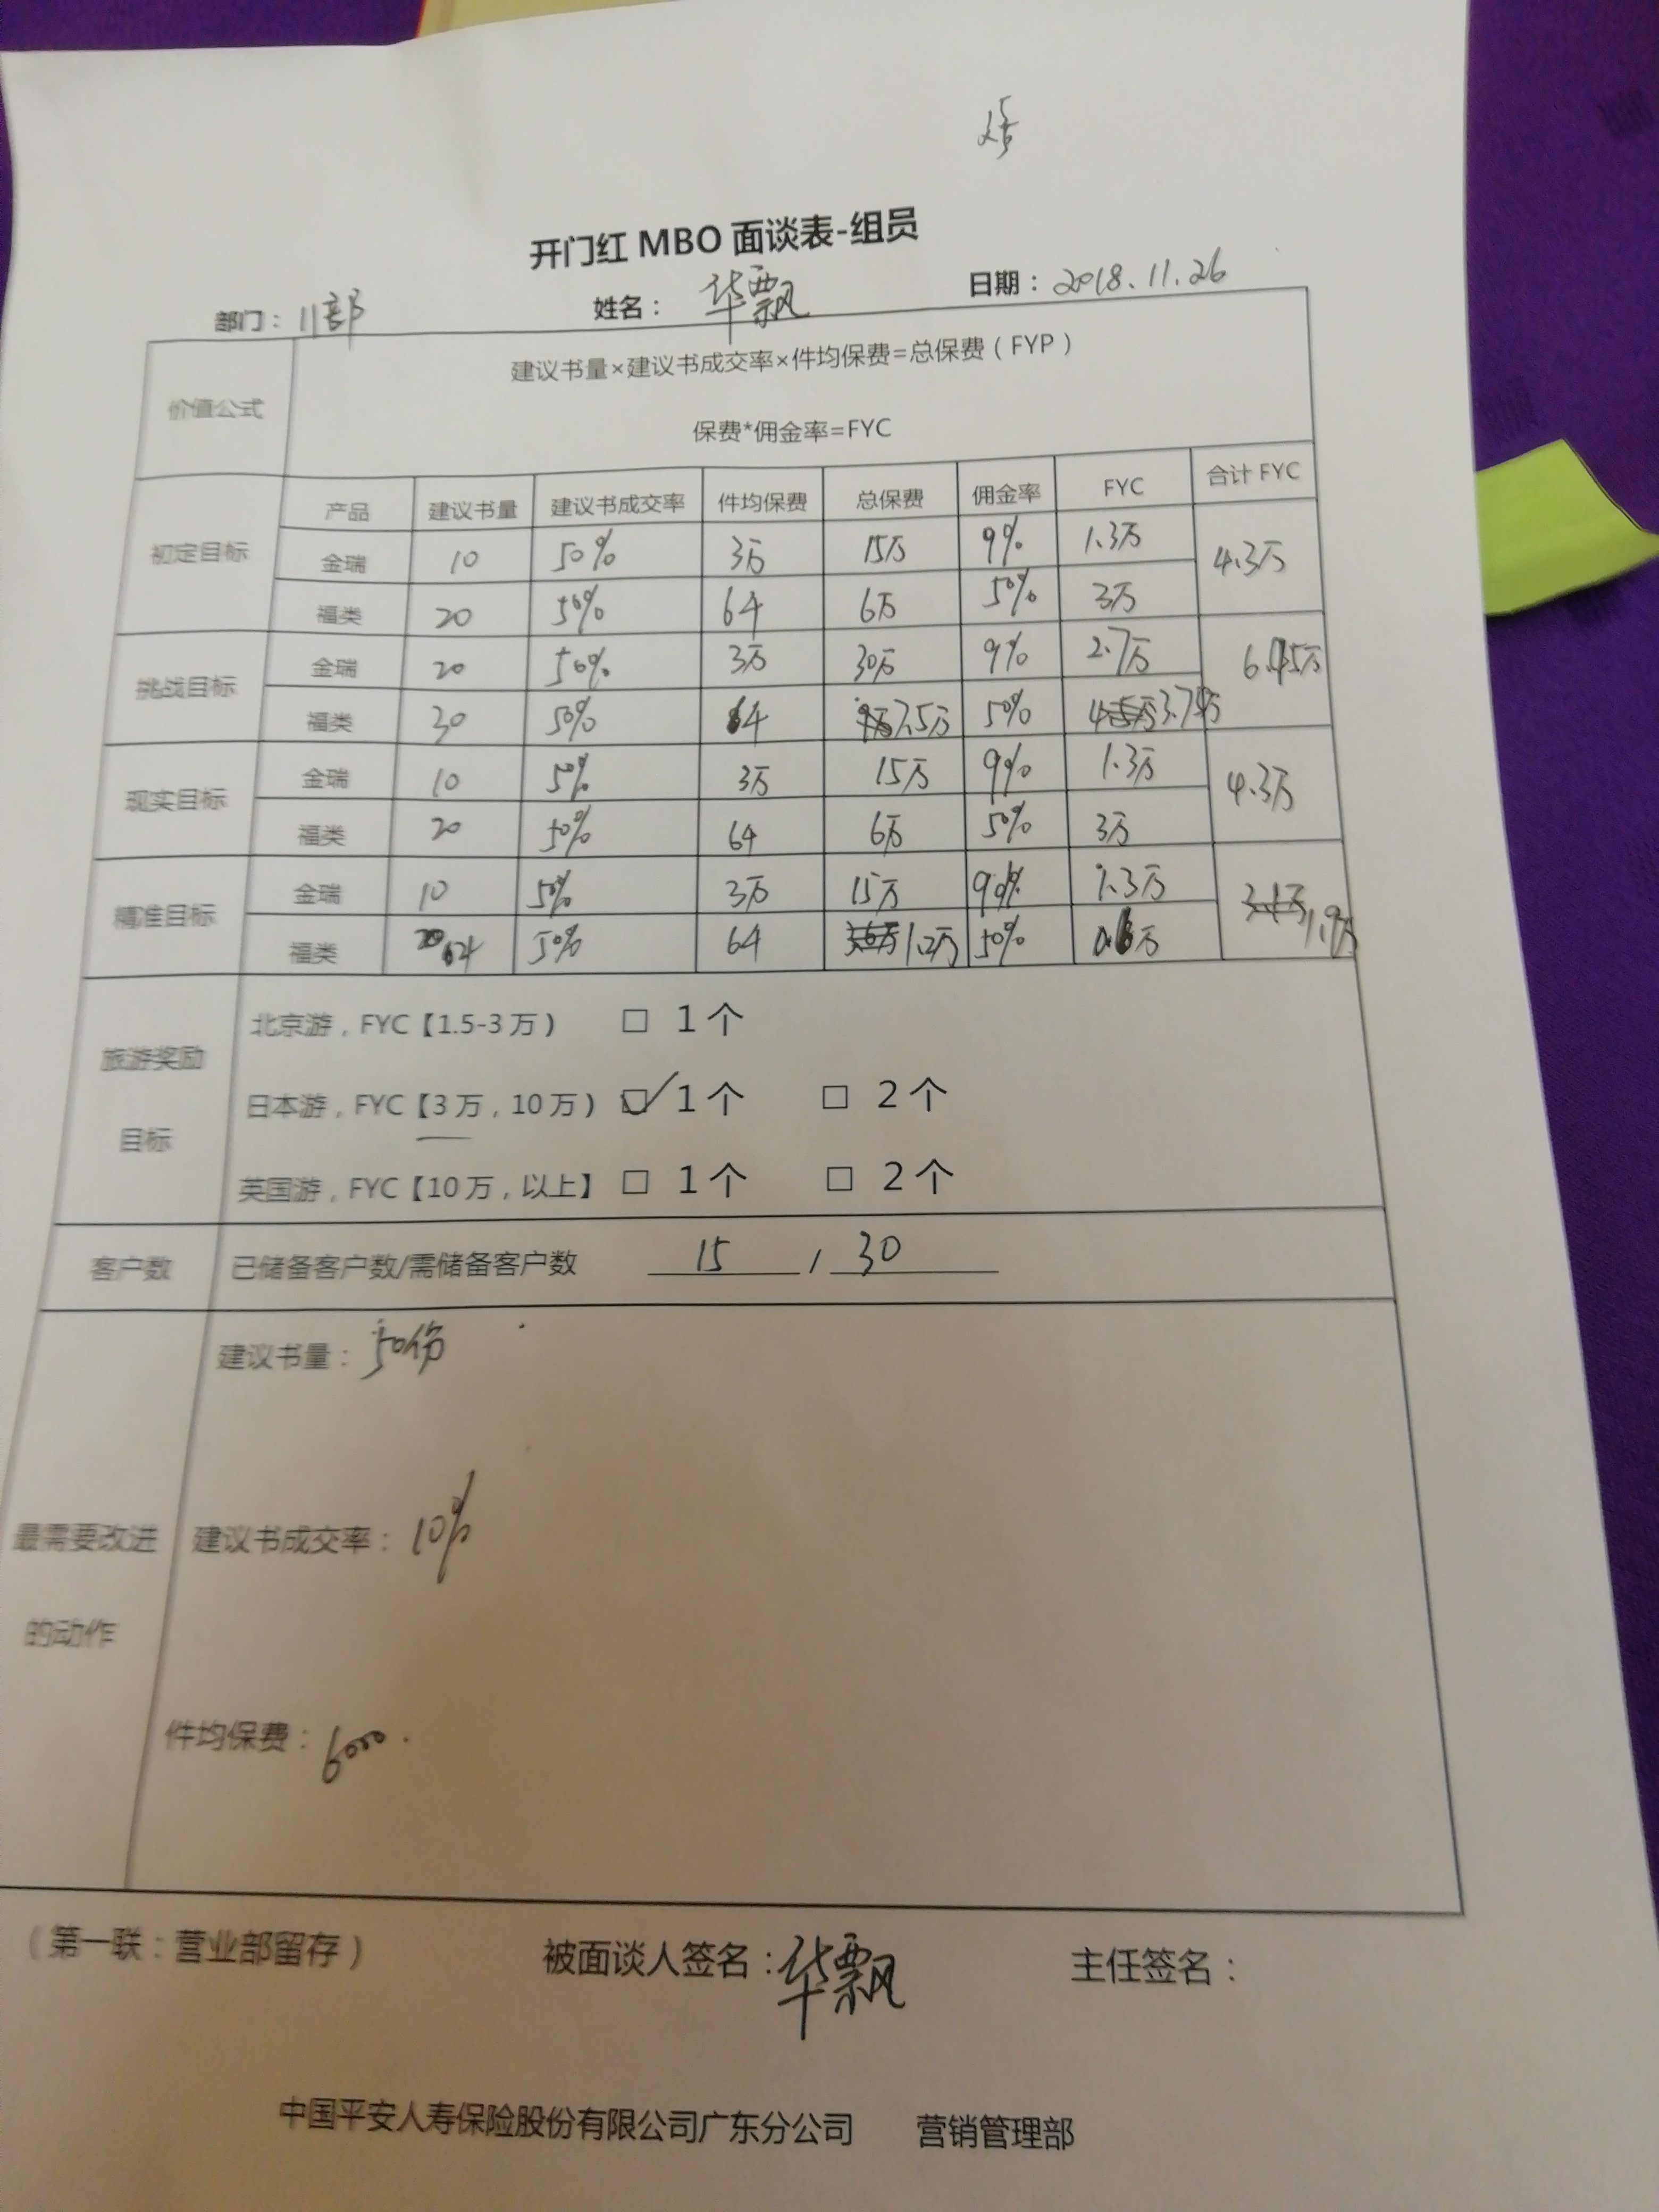 开门红 MBO 面谈表-组员
部门：11部 姓名：华飘 日期：2018.11.26
价值公式
建议书量×建议书成交率×件均保费=总保费（FYP）
保费*佣金率=FYC
产品 建议书量 建议书成交率 件均保费 总保费 佣金率 FYC 合计 FYC
初定目标
金瑞 10 50% 3万 15万 9% 1.3万 4.3万
福类 20 50% 6千 6万 50% 3万
挑战目标
金瑞 20 50% 3万 30万 9% 2.7万 6.45万
福类 30 50% 7.5万 50% 3.75万
现实目标
金瑞 10 50% 3万 15万 9% 1.3万 4.3万
福类 20 50% 6千 6万 50% 3万
精准目标
金瑞 10 50% 3万 15万 9% 1.3万 1.9万
福类 50% 6千 1.2万 50% 0.6万
旅游奖励
目标
北京游，FYC【1.5-3万） □ 1个
日本游，FYC【3万，10万） ☑ 1个 □ 2个
英国游，FYC【10万，以上】 □ 1个 □ 2个
客户数 已储备客户数/需储备客户数 15 / 30
最需要改进
的动作
建议书量：50份
建议书成交率：10%
件均保费：6000.
（第一联：营业部留存） 被面谈人签名：华飘 主任签名：
中国平安人寿保险股份有限公司广东分公司 营销管理部